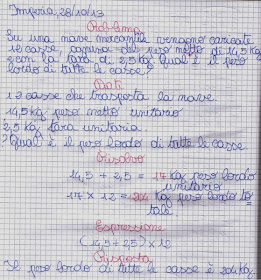 Imperia, 28/10/13
Problema
Su una nave mercantile vengono caricate
12 casse, ognuna del peso netto di 14,5 Kg
e con la tara di 2,5 Kg. Qual è il peso
lordo di tutte le casse?
Dati
12 casse che trasporta la nave
14,5 Kg peso netto unitario
2,5 Kg tara unitaria.
? Qual è il peso lordo di tutte le casse
Risolvo
14,5 + 2,5 = 17 Kg peso lordo
unitario
17 × 12 = 204 Kg peso lordo to
tale.
Espressione
(14,5+2,5) × 12
Risposta
Il peso lordo di tutte le casse è 204 Kg